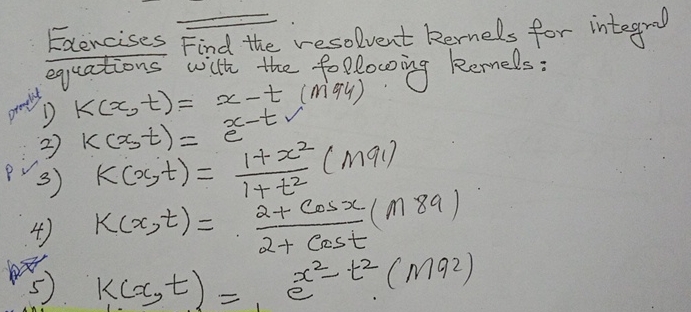 Exercises Find the resolvent kernels for integral
equations with the following kernels:
1) K(x,t) = x-t (M94).
2) K(x,t) = e^{x-t} ✓
P ✓ 3) K(x,t) = \frac{1+x^2}{1+t^2} (M91)
4) K(x,t) = \frac{2+Cosx}{2+Cost} (M89)
5) K(x,t) = e^{x^2-t^2} (M92)